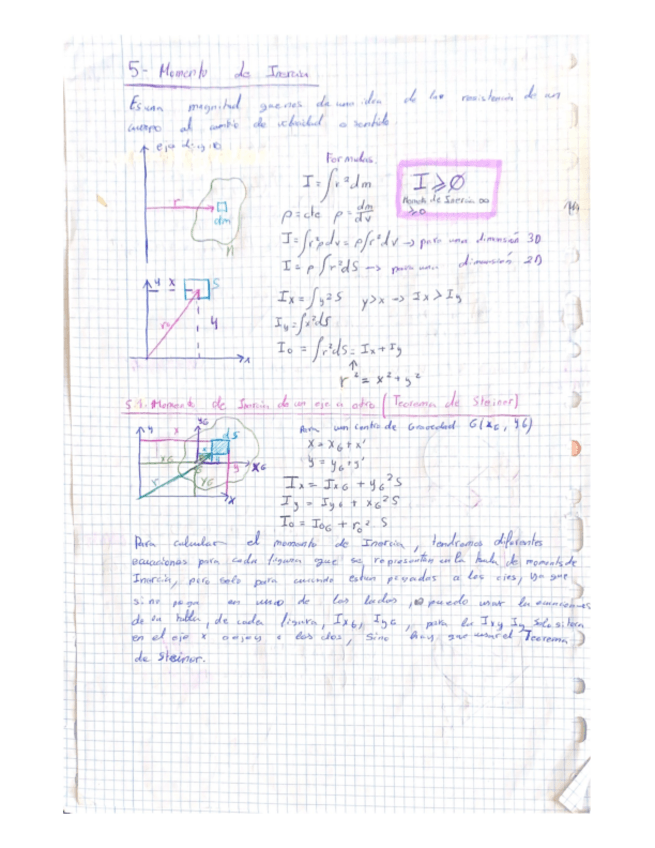 5- Momento de Inercia
Es una magnitud que nos da una idea de la resistencia de un
cuerpo al cambio de velocidad o sentido
eje
r
dm
Formulas.
I = ∫r²dm
I ≥ 0
Momento de Inercia
≥0
ρ = cte ρ = dm/dv
I = ∫r²ρdv = ρ∫r²dv → para una dimensión 3D
I = ρ∫r²dS → para una dimensión 2D
y x S
y
x
Ix = ∫y²S y>x → Ix > Iy
Iy = ∫x²dS
Io = ∫r²dS = Ix + Iy
r² = x² + y²
5.1. Momento de Inercia de un eje a otro (Teorema de Steiner)
Para un centro de Gravedad G(xG, yG)
y x yG dS
xG y xG
r yG
x
x = xG + x'
y = yG + y'
Ix = IxG + yG² S
Iy = IyG + xG² S
Io = IOG + ro² S
Para calcular el momento de Inercia, tendremos diferentes
ecuaciones para cada figura que se representan en la tabla de momento de
Inercia, pero solo para cuando estan pegadas a los ejes, ya que
si no pega en uno de los lados, puedo usar la ecuaciones
de la tabla, de cada figura, IxG, IyG, para la Ix y Iy solo si tocan
en el eje x o eje y o los dos, sino hay que usar el Teorema
de Steiner.